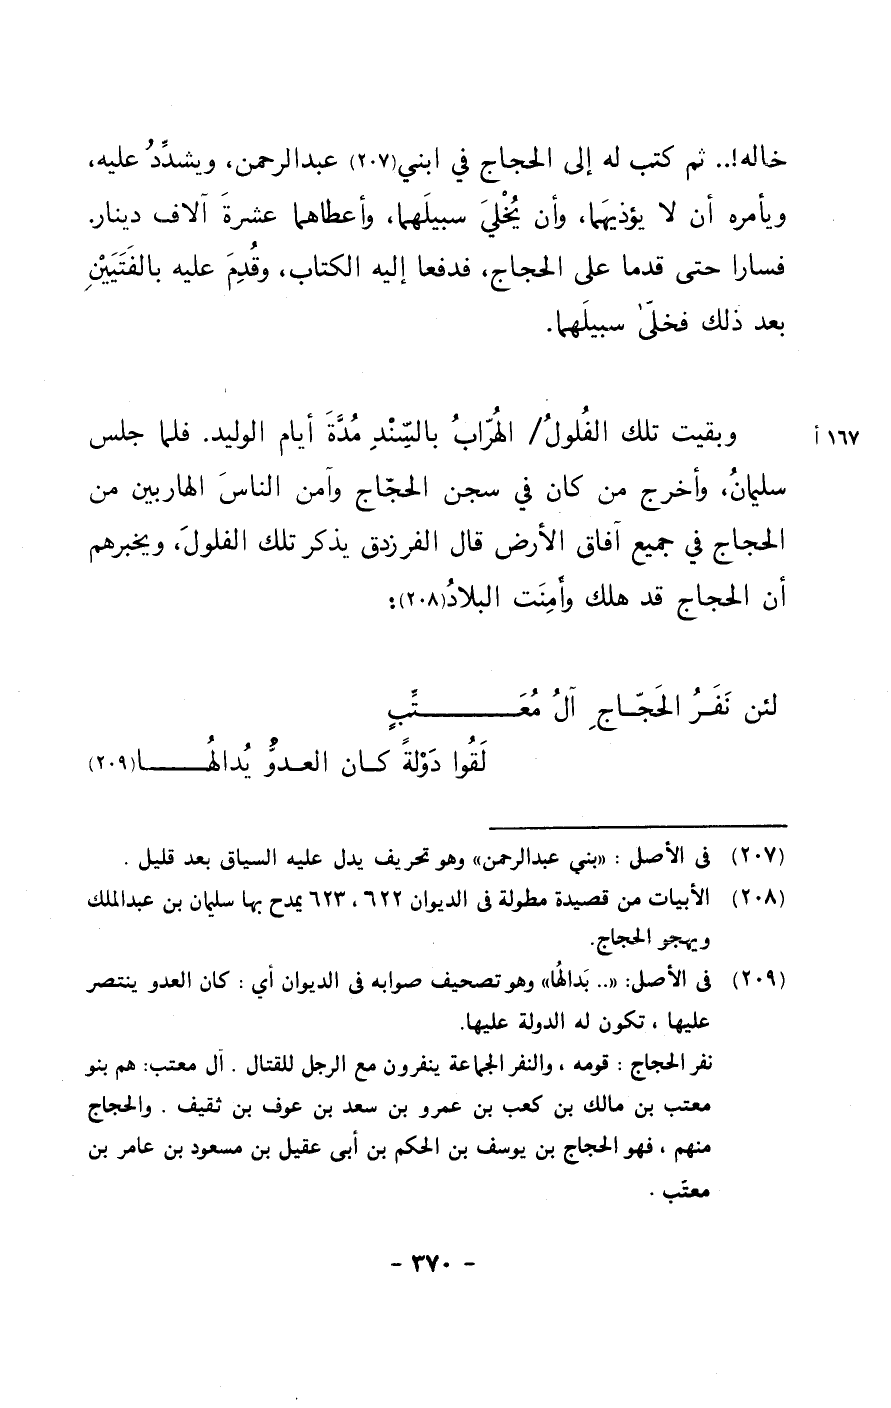 خاله!.. ثم كتب له إلى الحجاج في ابني(٢٠٧) عبدالرحمن، ويشدِّدُ عليه،
ويأمره أن لا يؤذيهَما، وأن يُخْليَ سبيلَهما، وأعطاهما عشرةَ آلاف دينار.
فسارا حتى قدما على الحجاج، فدفعا إليه الكتاب، وقُدِمَ عليه بالفَتَيَيْنِ
بعد ذلك فخلّىٰ سبيلَهما.
وبقيت تلك الفُلولُ/ الهُرّابُ بالسِّنْدِ مُدَّةَ أيام الوليد. فلما جلس ١٦٧ أ
سليمانُ، وأخرج من كان في سجن الحجّاج وآمن الناسَ الهاربين من
الحجاج في جميع آفاق الأرض قال الفرزدق يذكر تلك الفلولَ، ويخبرهم
أن الحجاج قد هلك وأَمِنَت البلادُ(٢٠٨):
لئن نَفَرُ الحَجّاجِ آلُ مُعَتِّبٍ
لَقُوا دَوْلةً كان العدوُّ يُدالهُا(٢٠٩)
(٢٠٧) فى الأصل : «بني عبدالرحمن» وهو تحريف يدل عليه السياق بعد قليل .
(٢٠٨) الأبيات من قصيدة مطولة فى الديوان ٦٢٢ ، ٦٢٣ يمدح بها سليمان بن عبدالملك
ويهجو الحجاج.
(٢٠٩) فى الأصل: «.. بَدالهُا» وهو تصحيف صوابه فى الديوان أي : كان العدو ينتصر
عليها ، تكون له الدولة عليها.
نفر الحجاج : قومه ، والنفر الجماعة ينفرون مع الرجل للقتال . آل معتب: هم بنو
معتب بن مالك بن كعب بن عمرو بن سعد بن عوف بن ثقيف . والحجاج
منهم ، فهو الحجاج بن يوسف بن الحكم بن أبى عقيل بن مسعود بن عامر بن
معتّب .
- ٣٧٠ -